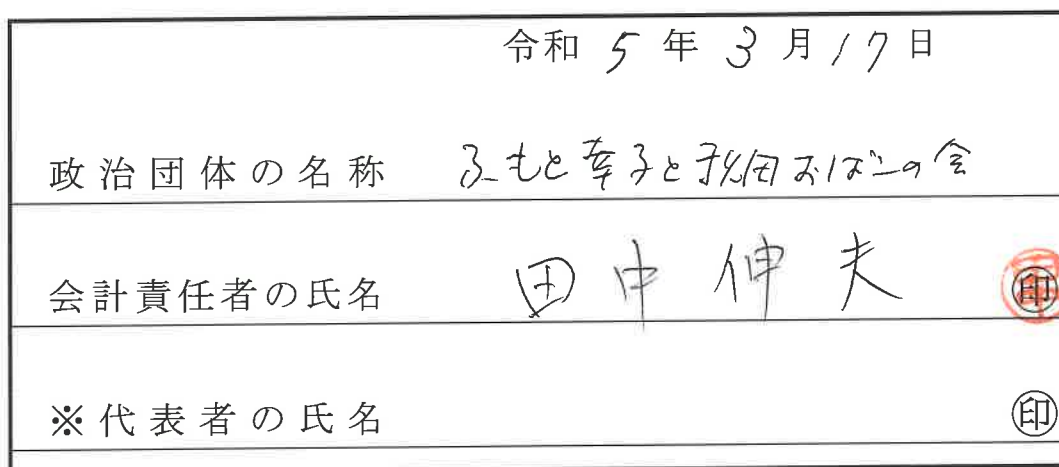 令和 5 年 3 月 17 日
政治団体の名称 ふもと幸子と秋田おばこの会
会計責任者の氏名 田中伸夫 ㊞
※代表者の氏名 ㊞